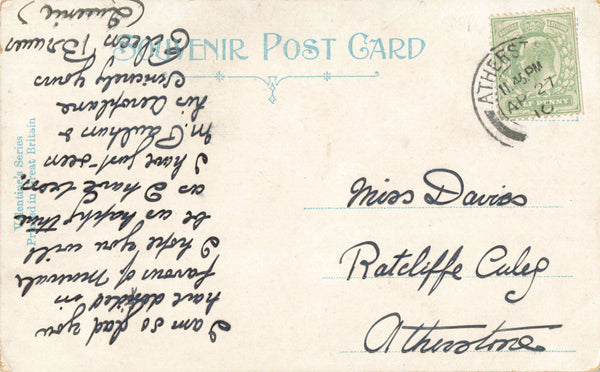 SOUVENIR POST CARD
ATHERST
11.45 PM
AP 27
10
HALF PENNY
Valentine's Series
Printed in Great Britain
Miss Davies
Ratcliffe Culey
Atherstone
I am so glad you
have decided in
favour of
I hope you will
be as happy there
as I have been.
I have just seen
M. Paulhan &
his aeroplane
Sincerely yours
Eileen
(Queenie)